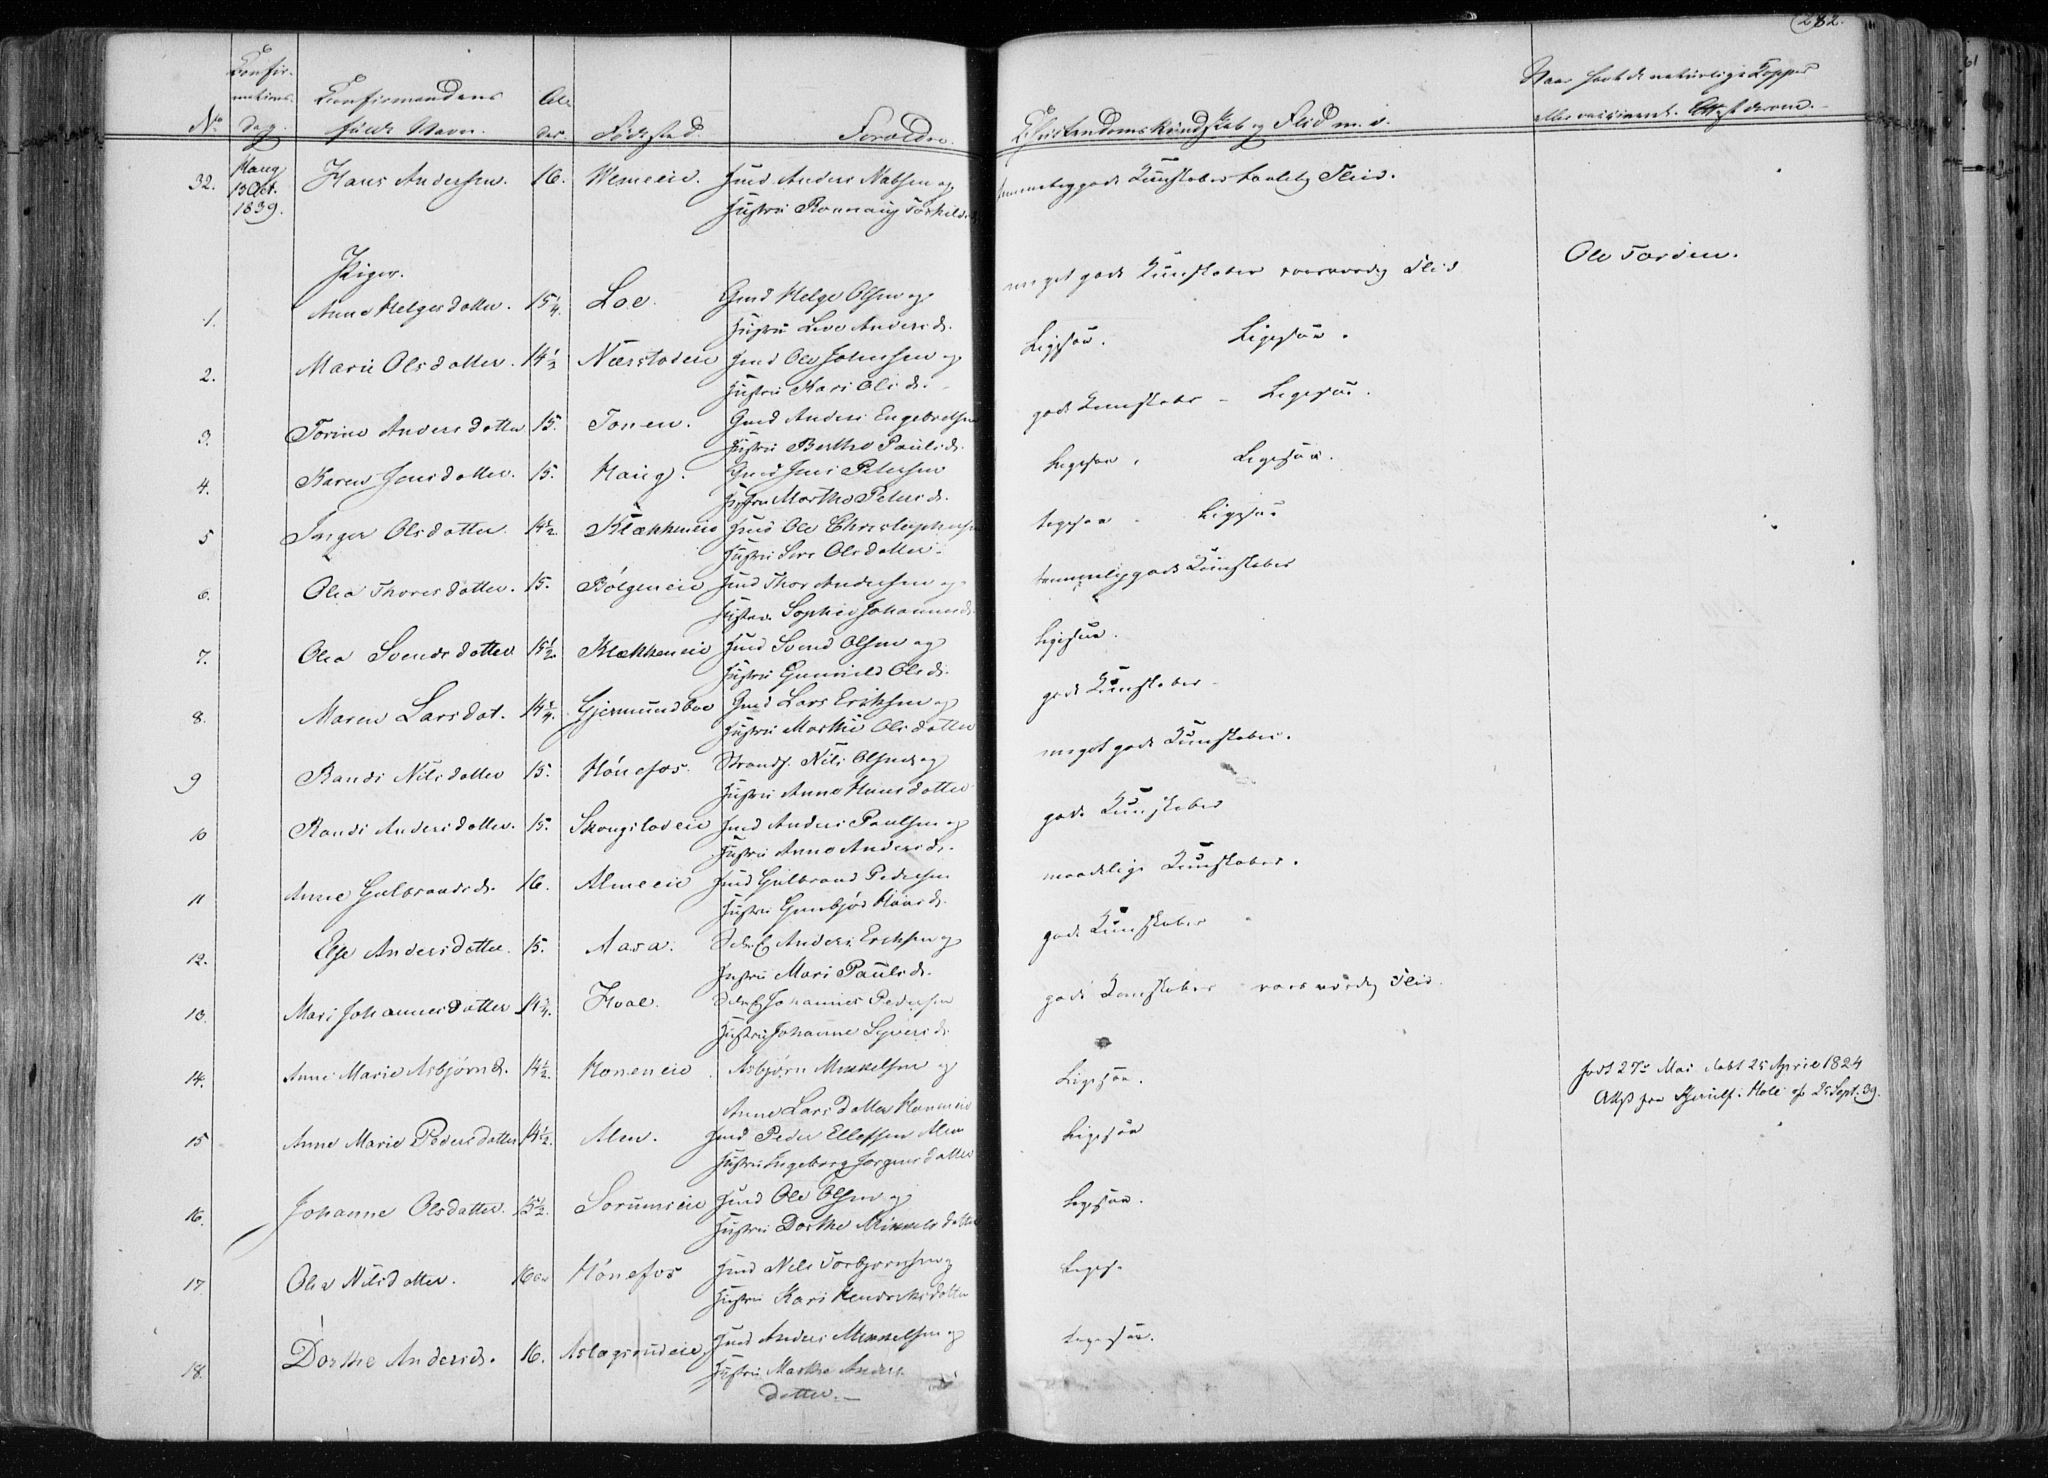 282.
No
Confir-
mations
dag.
Confirmandens
fulde Navn.
Al-
der.
Fødested.
Forældre.
Christendomskundskab og Flid m. v.
Naar havt de naturlige Kopper
eller vaccineret. Attest derom.
32. Haug 13 Oct. 1839. Hans Andersen. 16. Husmd Anders Nielsen og
Hustru Rønnaug Torkilsd.
temmelig gode Kunskaber taalelig Flid.
Piger.
1. Anne Helgesdatter. 15 1/4. Loe. Gmd Helge Olsen og
Hustru Live Andersd.
meget gode Kunskaber roesværdig Flid
2. Marie Olsdatter. 14 1/2 Næsstadeie Husmd Ole Johnsen og
Hustru Kari Olsd.
Ligesaa. Ligesaa.
3. Torine Andersdatter 15. Tonen. Gmd Anders Engebretsen
Hustru Berthe Paulsd.
gode Kunskaber - Ligesaa.
4. Karen Jensdatter. 15. Haug. Gmd Jens Petersen
Hustru Marthe Petersd.
Ligesaa. Ligesaa.
5 Inger Olsdatter 14 1/2. Klækkeneie Husmd Ole Christophersen
Hustru Olsdatter.
Ligesaa - Ligesaa
6. Olea Thoresdatter. 15. Bølgeneie Husmd Thor Andersen og
Hustru Sophie Johannesd.
temmelig gode Kunskaber
7. Olea Svendsdatter 15 1/2. Klækkeneie Husmd Svend Olsen og
Hustru Gunnild Olsd.
Ligesaa.
8. Maren Larsdat. 14 3/4. Gjermundboe Gmd Lars Eriksen og
Hustru Marthe Olsdatter
gode Kunskaber
9 Randi Nilsdatter 15. Hønefos. Strands. Nils Olsen og
Hustru Anne Hansdatter
meget gode Kunskaber.
10 Randi Andersdatter. 15. Husmd Anders Paulsen og
Hustru Anne Andersd.
gode Kunskaber
11 Anne Gulbrandsd. 16. Almeeie Husmd Gulbrand Pedersen
Hustru Gunbjør Hansd.
maadelige Kunskaber.
12. Else Andersdatter. 15. Aasa. Anders Eriksen og
Hustru Mari Paulsd.
gode Kunskaber
13. Mari Johannesdatter 14 3/4. Hval. Johannes Pedersen
Hustru Johanne Syversd.
gode Kunskaber roesværdig Flid.
14. Anne Marie Asbjørnd. 14 1/2. Honeneie. Asbjørn Mikkelsen og
Anne Larsdatter Honeneie
Ligesaa.
født 27de Mai døbt 25 April 1824
Attest fra Hole af 25 Sept. 39.
15 Anne Marie Pedersdatter 14 1/2. Alen. Husmd Peder Ellefsen Alen
Hustru Ingeborg Jørgensdatter
Ligesaa
16. Johanne Olsdatter. 15 1/2. Sørumseie Husmd Ole Olsen og
Hustru Dorthe Mikkelsdatter
Ligesaa.
17 Olea Nilsdatter. 16 Hønefos Husmd Nils Torbjørnsen og
Hustru Kari Hendriksdatter
Liges.
18. Dorthe Andersd. 16. Aslagsrudeie Husmd Anders Mikkelsen og
Hustru Marthe Anders-
datter.
Ligesaa.